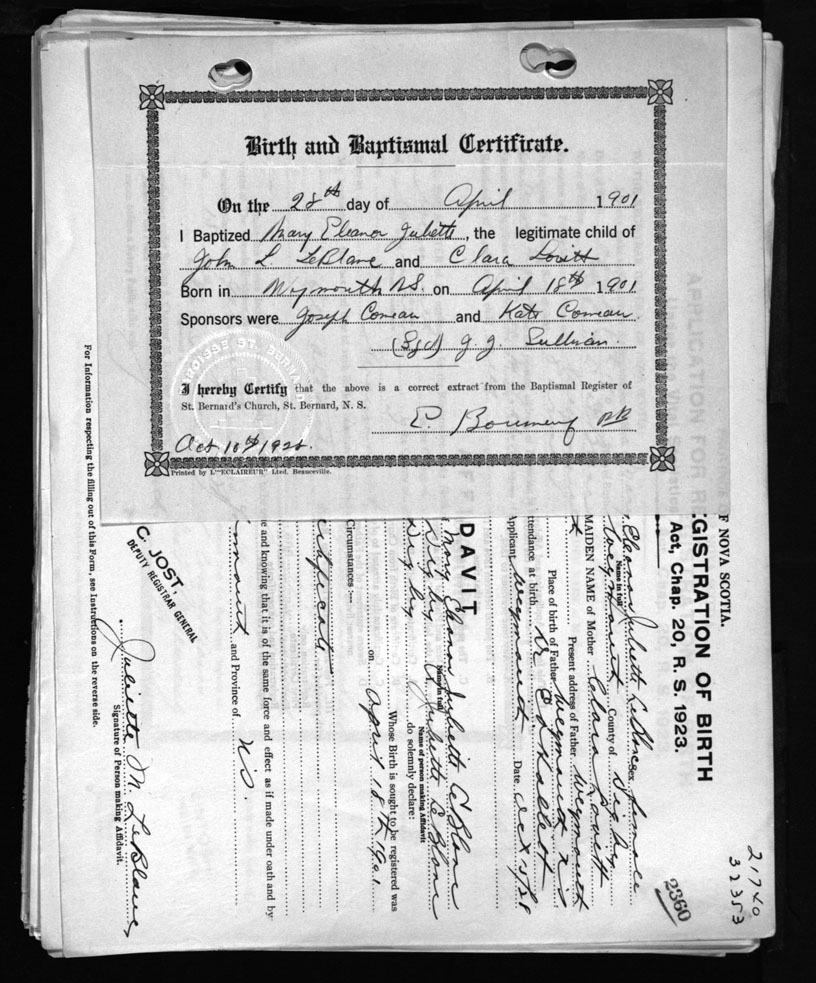 Birth and Baptismal Certificate.
On the 28th day of April 1901
I Baptized Mary Eleanor Juliette, the legitimate child of
John L. LeBlanc and Clara Lovitt
Born in Weymouth N.S. on April 18th 1901
Sponsors were Joseph Comeau and Kate Comeau
(Sgd) J. J. Sullivan.
PAROISSE ST. BERNARD
I hereby Certify that the above is a correct extract from the Baptismal Register of
St. Bernard's Church, St. Bernard, N. S.
E.
Oct 10th
Printed by L'"ECLAIREUR" Lted. Beauceville.
F NOVA SCOTIA.
EGISTRATION OF BIRTH
Act, Chap. 20, R. S. 1923.
Eleanor Juliett LeBlanc sex female
Name in full
Weymouth County of Digby
MAIDEN NAME of Mother Clara Lovitt
Present address of Father Weymouth
Place of birth of Father Weymouth N.S
attendance at birth. Dr.
Applicant Weymouth Date Oct
DAVIT
Mary Eleanor Juliette LeBlanc
Name in full
Digby Juliette LeBlanc
Name of person making Affidavit
Digby do solemnly declare:
Whose Birth is sought to be registered was
on April 18th 1901
Circumstances:—
ve and knowing that it is of the same force and effect as if made under oath and by
mouth and Province of N.S.
Juliette M. LeBlanc
Signature of Person making Affidavit.
C. JOST,
DEPUTY REGISTRAR GENERAL
For Information respecting the filling out of this Form, see Instructions on the reverse side.
2360
21740
32353